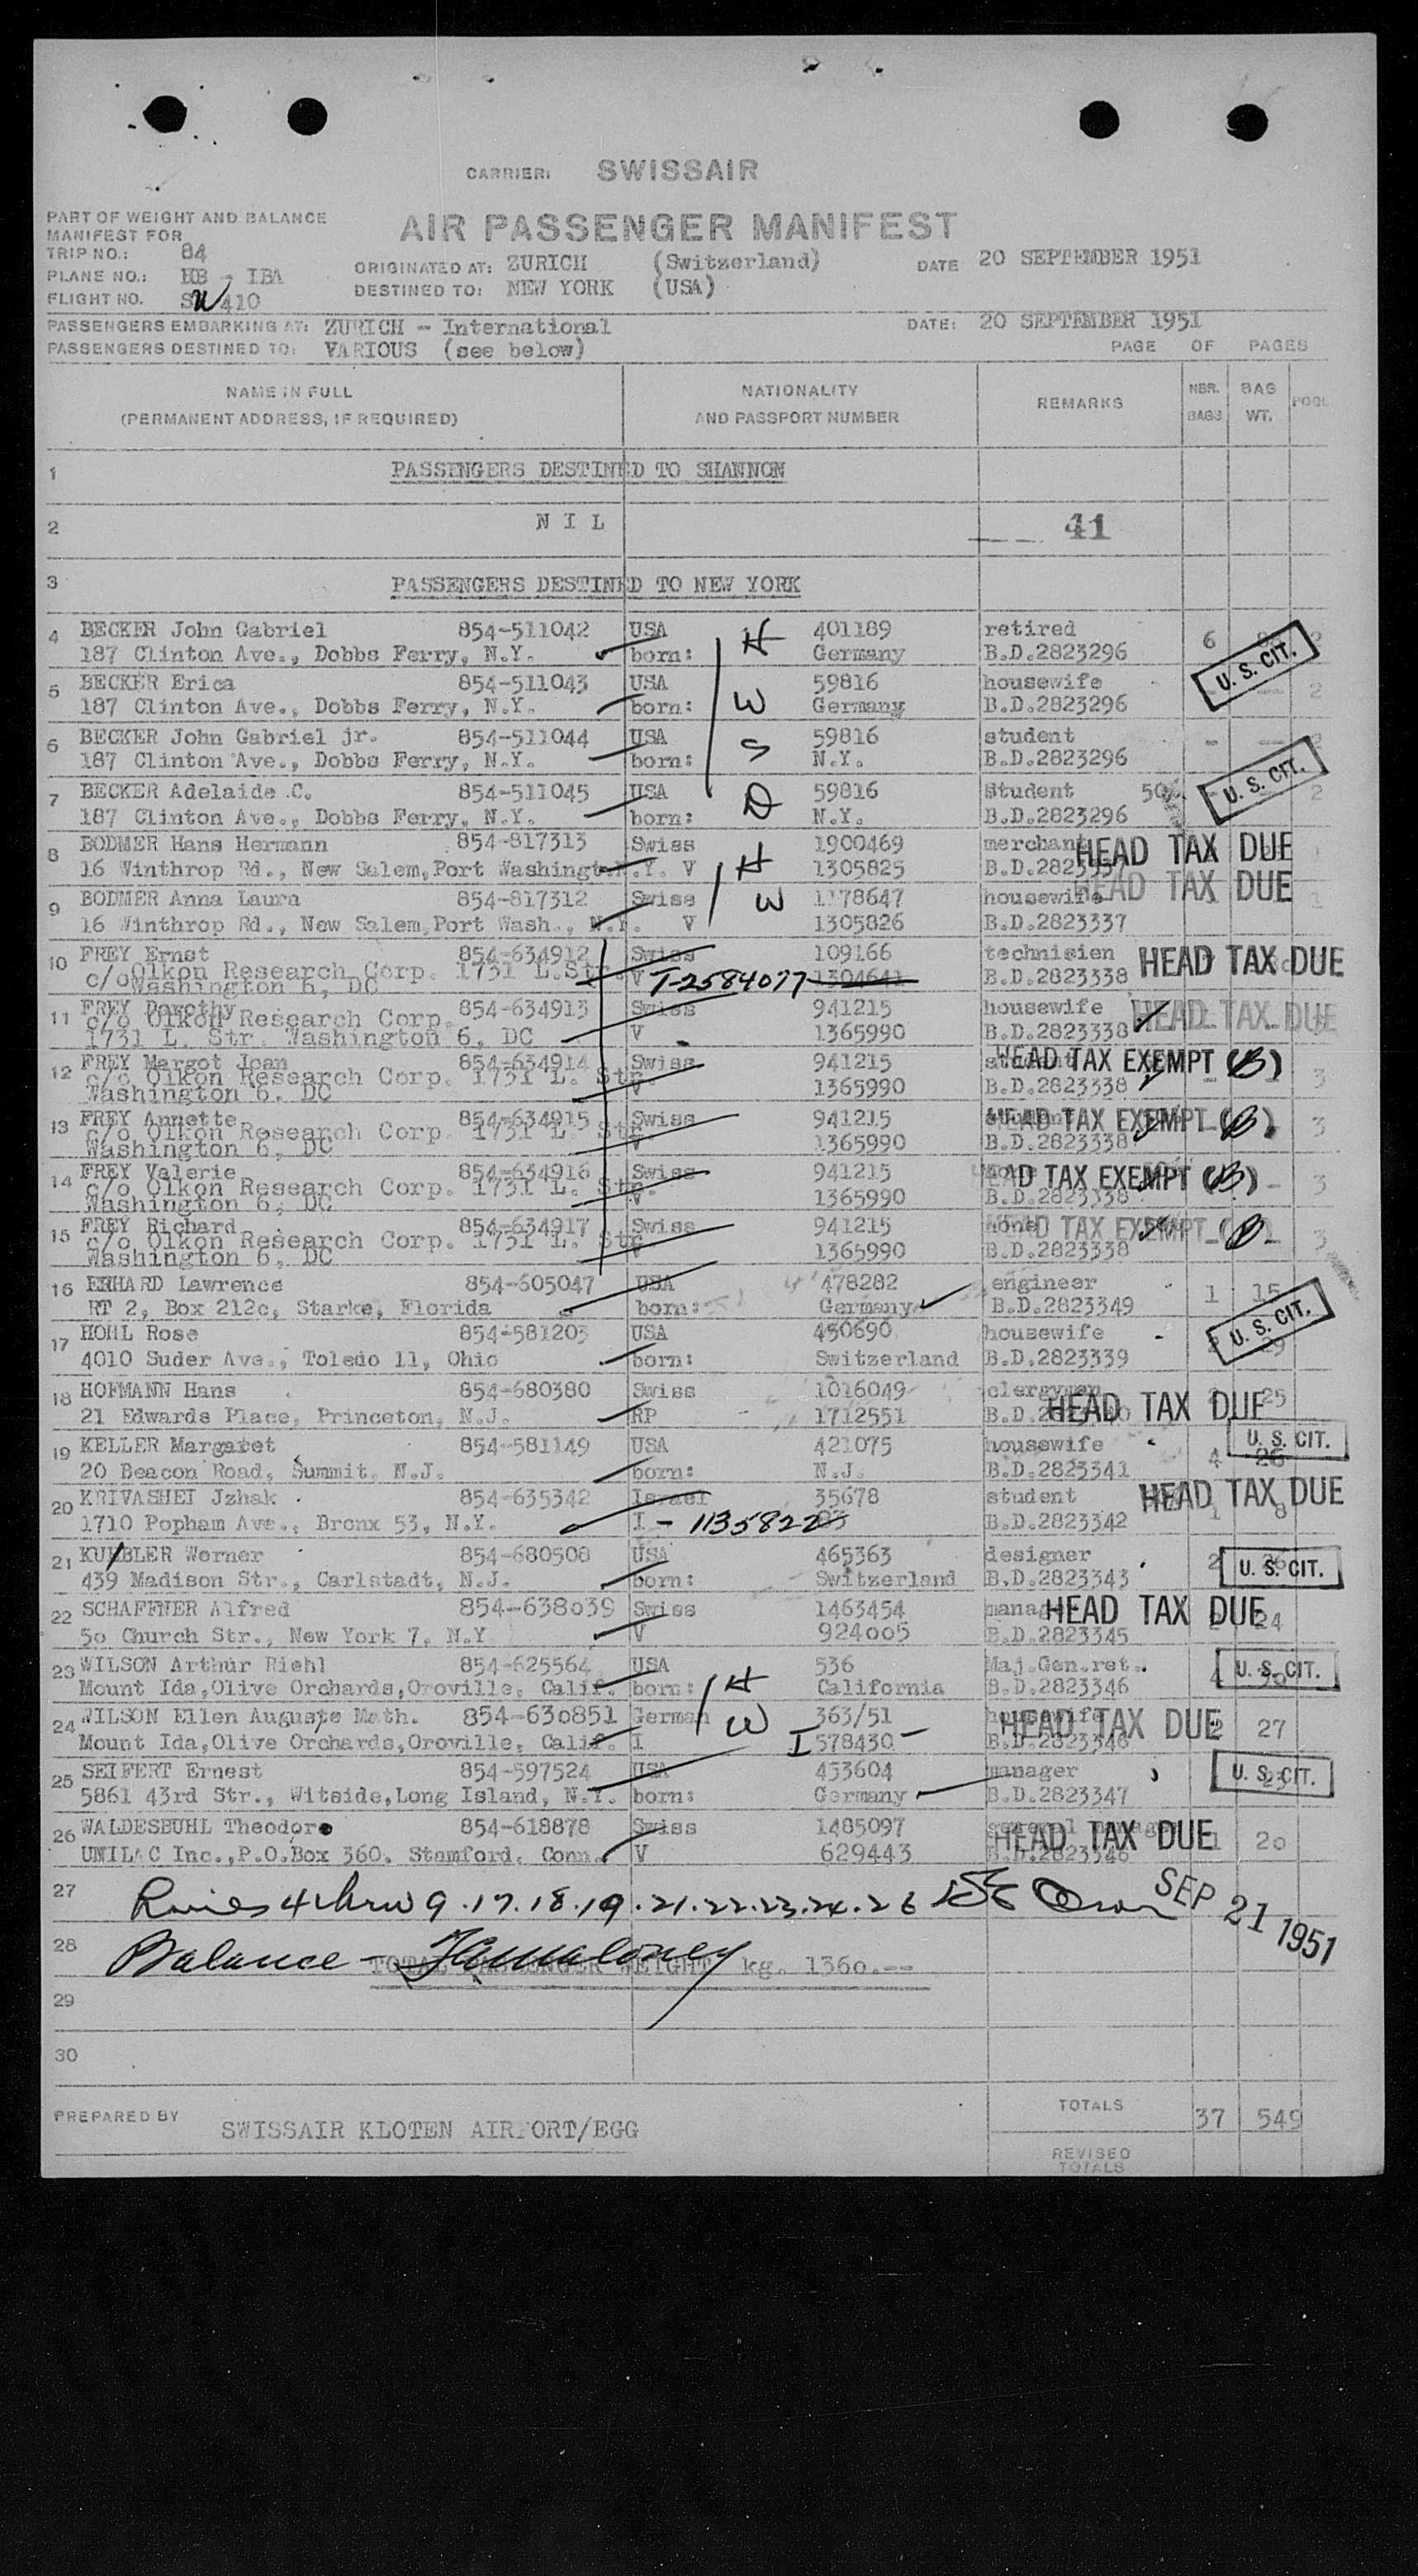 CARRIER: SWISSAIR
PART OF WEIGHT AND BALANCE
MANIFEST FOR
AIR PASSENGER MANIFEST
TRIP NO.: 84
PLANE NO.: HB - IBA
FLIGHT NO. SW 410
ORIGINATED AT: ZURICH (Switzerland)
DESTINED TO: NEW YORK (USA)
DATE 20 SEPTEMBER 1951
PASSENGERS EMBARKING AT: ZURICH - International DATE: 20 SEPTEMBER 1951
PASSENGERS DESTINED TO: VARIOUS (see below) PAGE OF PAGES
NAME IN FULL NATIONALITY REMARKS NBR. BAG POOL
(PERMANENT ADDRESS, IF REQUIRED) AND PASSPORT NUMBER BAGS WT.
1 PASSENGERS DESTINED TO SHANNON
2 N I L 41
3 PASSENGERS DESTINED TO NEW YORK
4 BECKER John Gabriel 854-511042 USA H 401189 retired 6
187 Clinton Ave., Dobbs Ferry, N.Y. born: Germany B.D.2823296 U. S. CIT.
5 BECKER Erica 854-511043 USA 59816 housewife - 2
187 Clinton Ave., Dobbs Ferry, N.Y. born: W Germany B.D.2823296
6 BECKER John Gabriel jr. 854-511044 USA S 59816 student -
187 Clinton Ave., Dobbs Ferry, N.Y. born: N.Y. B.D.2823296 U. S. CIT.
7 BECKER Adelaide C. 854-511045 USA D 59816 Student 2
187 Clinton Ave., Dobbs Ferry, N.Y. born: N.Y. B.D.2823296
8 BODMER Hans Hermann 854-817313 Swiss 1900469 merchant HEAD TAX DUE
16 Winthrop Rd., New Salem,Port Washingt. N.Y. V H 1305825
9 BODMER Anna Laura 854-817312 Swiss W 1178647 housewife HEAD TAX DUE 1
16 Winthrop Rd., New Salem,Port Wash., N.Y. V 1305826 B.D.2823337
10 FREY Ernst 854-634912 Swiss 109166 technisien HEAD TAX DUE
c/o Olkon Research Corp. 1731 L.Str. V T-2584077 1304641 B.D.2823338
Washington 6, DC
11 FREY Dorothy 854-634913 Swiss 941215 housewife HEAD TAX DUE
c/o Olkon Research Corp.
1731 L. Str. Washington 6, DC V 1365990 B.D.2823338
12 FREY Margot Joan 854-634914 Swiss 941215 HEAD TAX EXEMPT (B)
c/o Olkon Research Corp. 1731 L. Str. V 1365990 B.D.2823338 3
Washington 6, DC
13 FREY Annette 854-634915 Swiss 941215 HEAD TAX EXEMPT (B) 3
c/o Olkon Research Corp. 1731 L. Str. V 1365990 B.D.2823338
Washington 6, DC
14 FREY Valerie 854-634916 Swiss 941215 HEAD TAX EXEMPT (B) 3
c/o Olkon Research Corp. 1731 L. Str. V 1365990 B.D.2823338
Washington 6, DC
15 FREY Richard 854-634917 Swiss 941215 none HEAD TAX EXEMPT (B) 3
c/o Olkon Research Corp. 1731 L. Str. V 1365990 B.D.2823338
Washington 6, DC
16 ERHARD Lawrence 854-605047 USA 478282 engineer 1 15
RT 2, Box 212c, Starke, Florida born: Germany B.D.2823349 U. S. CIT.
17 HOHL Rose 854-581203 USA 450690 housewife 2 29
4010 Suder Ave., Toledo 11, Ohio born: Switzerland B.D.2823339
18 HOFMANN Hans 854-680380 Swiss 1016049 clergyman HEAD TAX DUE 25
21 Edwards Place, Princeton, N.J. RP - 1712551
19 KELLER Margaret 854-581149 USA 421075 housewife 4 26 U. S. CIT.
20 Beacon Road, Summit, N.J. born: N.J. B.D.2823341
20 KRIVASHEI Jzhak 854-635342 Israel 35678 student HEAD TAX DUE 1 8
1710 Popham Ave., Bronx 53, N.Y. I - 1135822 B.D.2823342
21 KUEBLER Werner 854-680508 USA 465363 designer 2 U. S. CIT.
439 Madison Str., Carlstadt, N.J. born: Switzerland B.D.2823343
22 SCHAFFNER Alfred 854-638039 Swiss 1463454 manager HEAD TAX DUE 24
50 Church Str., New York 7, N.Y V 924005 B.D.2823345
23 WILSON Arthur Riehl 854-625564 USA H 536 Maj.Gen.ret. 4 U. S. CIT.
Mount Ida,Olive Orchards,Oroville, Calif. born: California B.D.2823346
24 WILSON Ellen Auguste Math. 854-630851 German W 363/51 housewife HEAD TAX DUE 2 27
Mount Ida,Olive Orchards,Oroville, Calif. I I 578430 B.D.2823346
25 SEIFERT Ernest 854-597524 USA 453604 manager U. S. CIT.
5861 43rd Str., Witside,Long Island, N.Y. born: Germany B.D.2823347
26 WALDESBUHL Theodore 854-618878 Swiss 1485097 general manager HEAD TAX DUE 1 20
UNILAC Inc.,P.O.Box 360, Stamford, Conn. V 629443
27 4 thru 9 . 17 . 18 . 19 . 21 . 22 . 23 . 24 . 26 SEP 21 1951
28 Balance -
TOTAL PASSENGER WEIGHT kg. 1360.--
29
30
PREPARED BY SWISSAIR KLOTEN AIRPORT/EGG TOTALS 37 549
REVISED
TOTALS